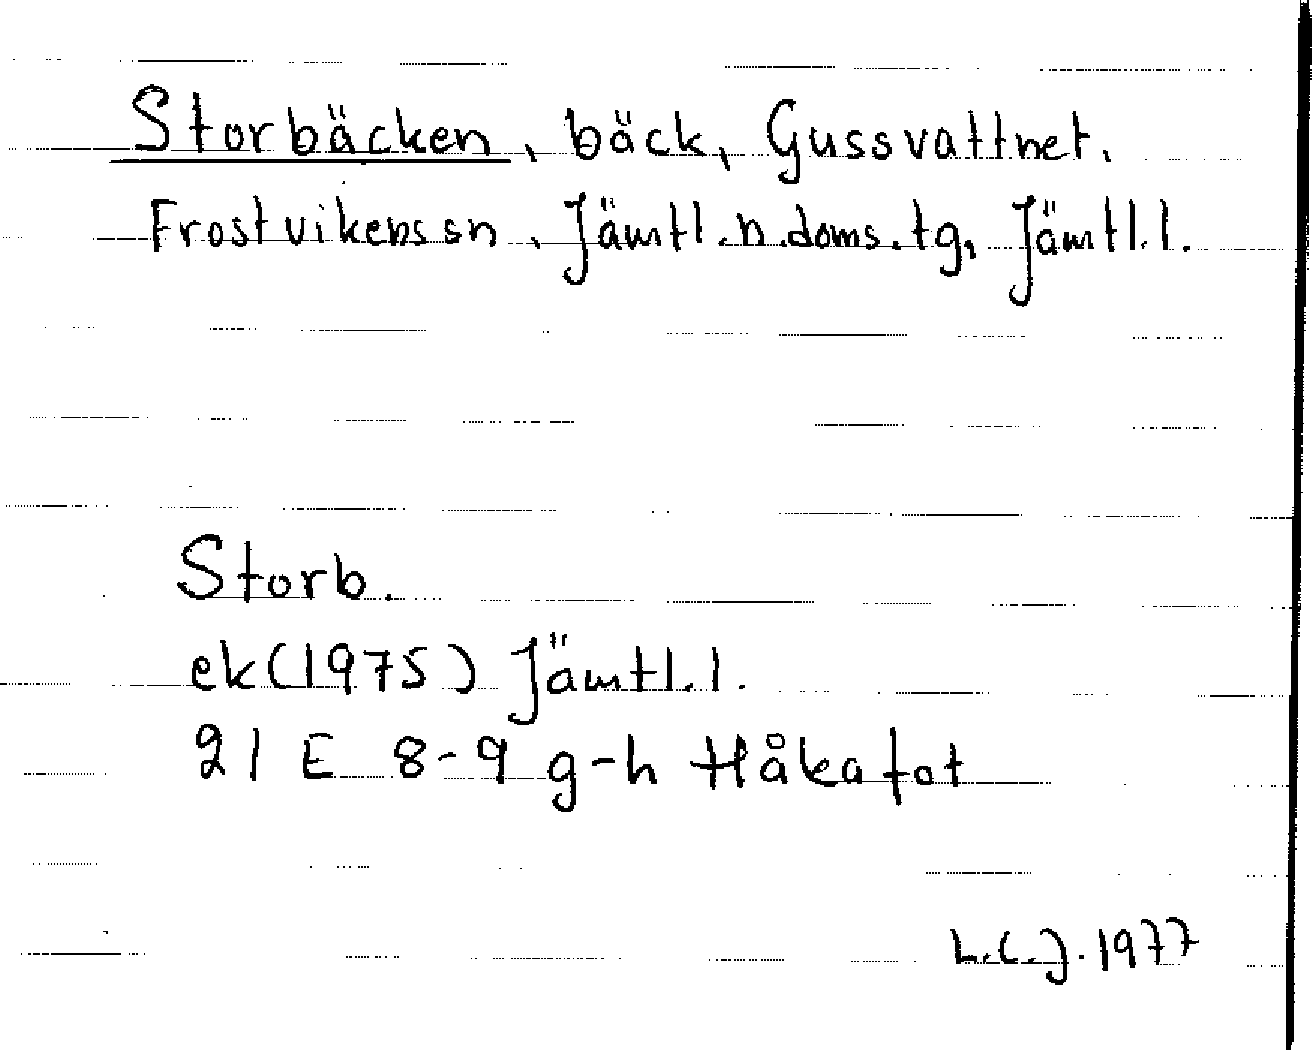 Storbäcken, bäck, Gussvattnet.
Frostvikens sn, Jämtl.n.doms.tg, Jämtl.l.
Storb.
ek(1975) Jämtl.l.
21 E 8-9 g-h Håkafot
L.C.J. 1977